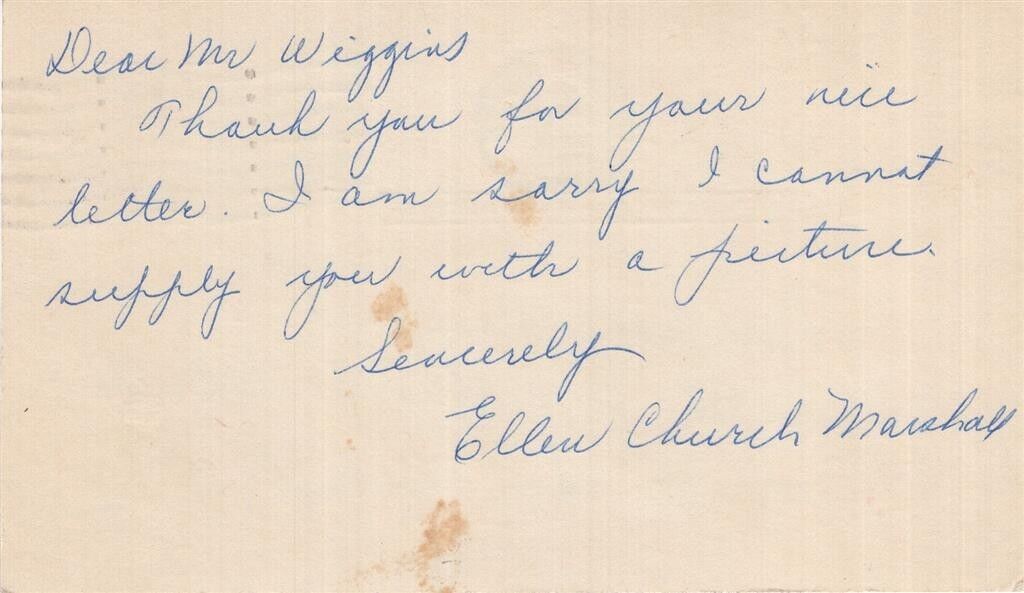 Dear Mr Wiggins
Thank you for your nice
letter. I am sorry I cannot
supply you with a picture.
Sincerely
Ellen Church Marshall